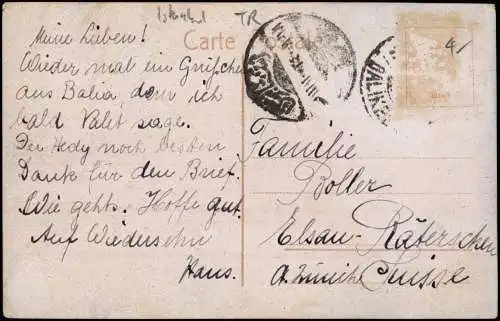 Istanbul
TR
4/
Carte Postale
Meine Lieben!
Wieder mal ein Grüsschen
aus Balia, dem ich
bald Valet sage.
Der Hedy noch besten
Dank für den Brief.
Wie gehts. Hoffe gut.
Auf Wiedersehn
Hans.
Familie
Boller
Elsau-Räterschen
Ct. Zürich Suisse